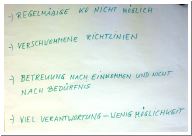 → REGELMÄßIGE KO NICHT MÖGLICH
→ VERSCHWOMMENE RICHTLINIEN
→ BETREUUNG NACH EINKOMMEN UND NICHT
NACH BEDÜRFNIS
→ VIEL VERANTWORTUNG - WENIG MÖGLICHKEIT